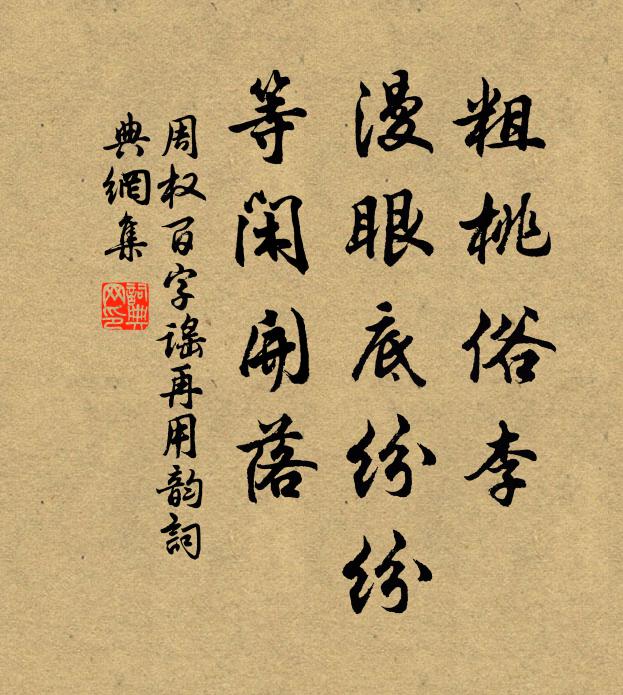 粗桃俗李
漫眼底纷纷
等闲開落
周权百字謠再用韵詞
典網集
詞典
网印